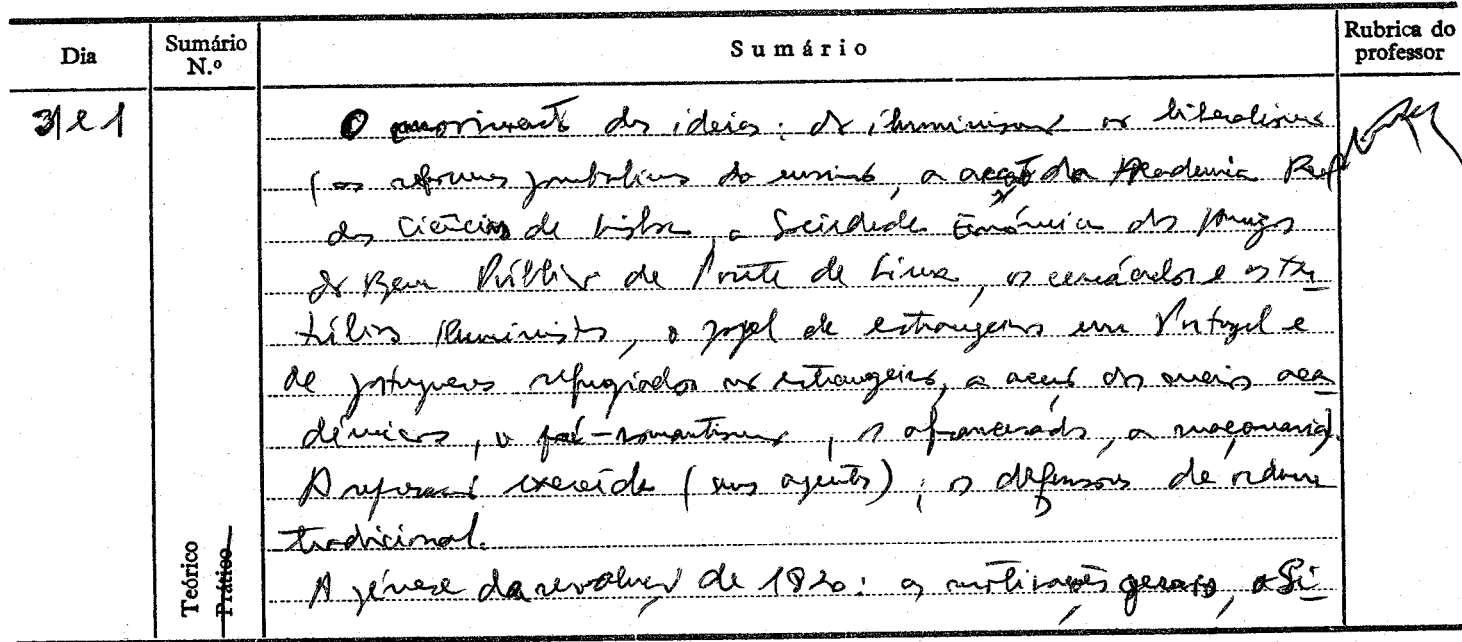 Dia
Sumário N.º
Sumário
Rubrica do professor
3/21
O movimento das ideias: do iluminismo ao liberalismo
(as reformas pombalinas do ensino, a acção da Academia Real
das Ciências de Lisboa, a Sociedade Económica dos Amigos
do Bem Público de Ponte de Lima, os cenáculos e as ter
túlias iluministas, o papel de estrangeiros em Portugal e
de portugueses refugiados no estrangeiro, a acção dos meios aca
démicos, o pré-romantismo, os afrancesados, a maçonaria).
A repressão exercida (seus agentes); os defensores da ordem
tradicional.
A génese da revolução de 1820: as motivações gerais, o Si
Teórico
Prático